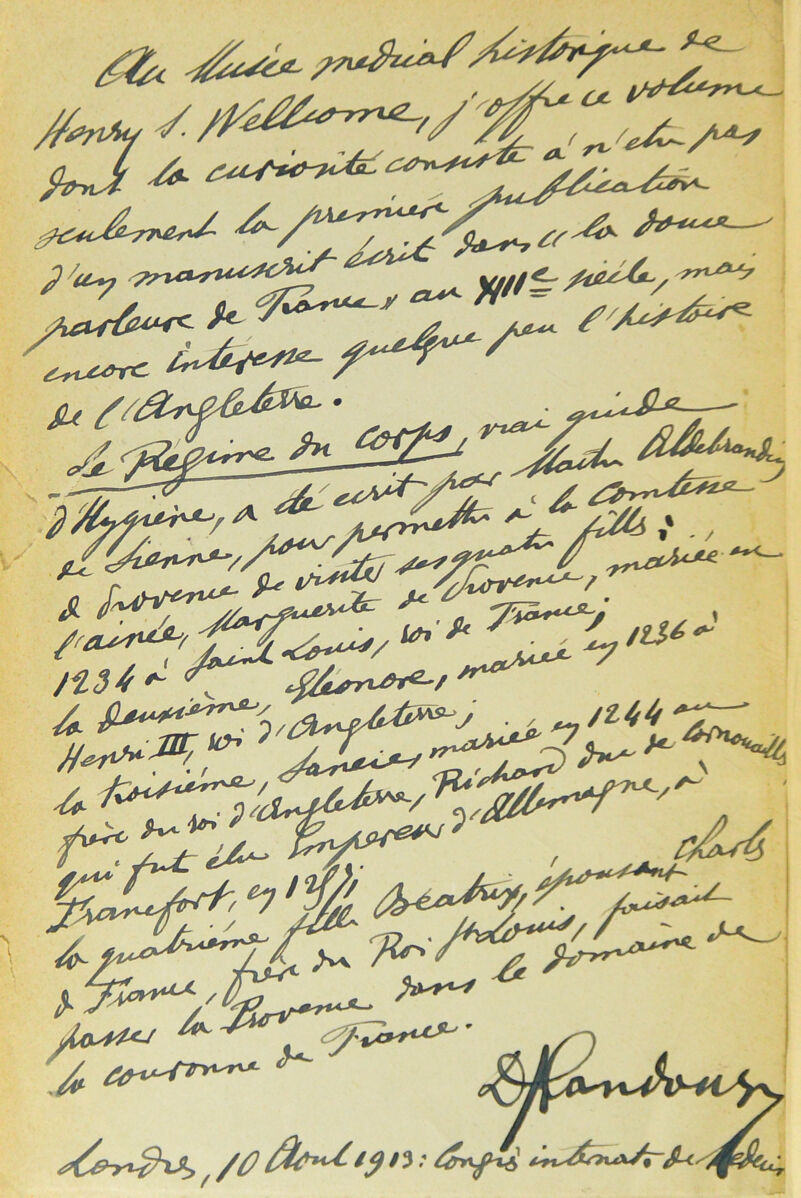 Au Musée medical historique de
Henry S. Wellcome, j'offre ce volume
dont la curiosité consiste à n'etre pas
seulement la première publication
d'un manuscrit écrit dans « la douce
parleure de France » au XIIIe siècle, mais
encore intéresse quelque peu l'histoire
de l'Angleterre.
Le Régime du Corps, vrai guide
d'Hygiène, a été écrit par Maitre Aldebrandin
de Sienne, pour permettre à la Comtesse
de Provence de visiter ses quatre filles :
l'ainée, Marguerite de Provence, mariée en
1234 à Saint Louis, roi de France ;
la deuxième, Eléonore, mariée en 1236 à
Henri III, roi d'Angleterre ;
la troisième, Sancie, mariée en 1244 au
frère du roi d'Angleterre, Richard duc de Cornouailles,
qui fut élu Empereur d'Allemagne, à
Francfort, en 1257 ;
la quatrième fille Béatrix, épousant Charles
de France, frère du Roi St Louis, faisait
passer la Provence dans le domaine de
la couronne de France.
Dr Landouzy
Londres, 10 Août 1913 : Congrès internat. de Médecin